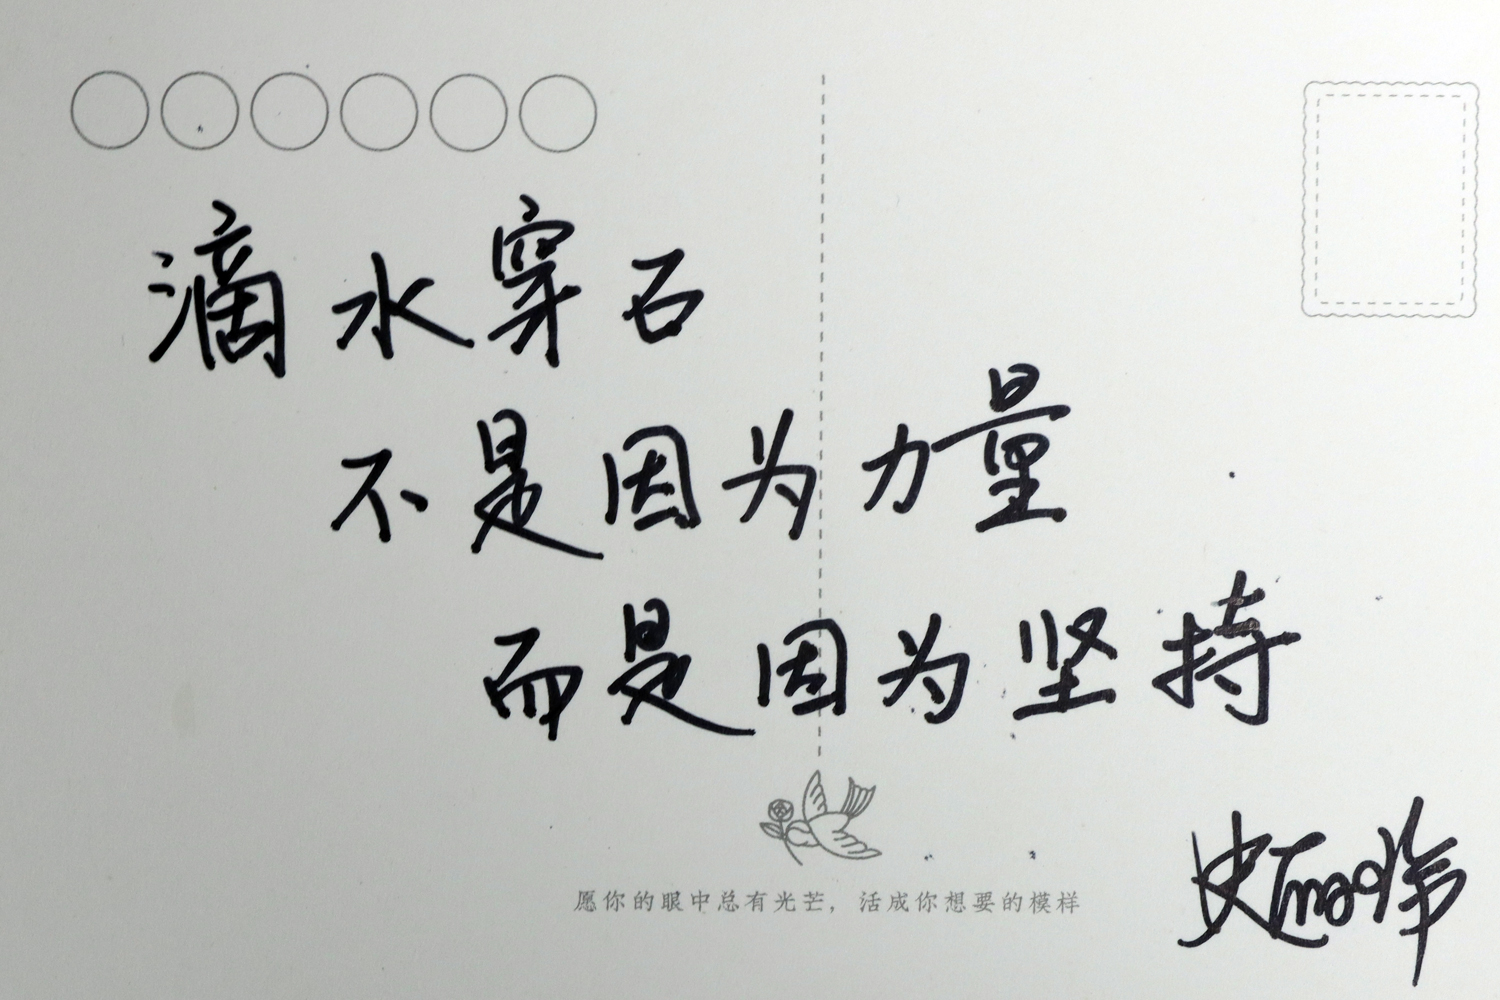 滴水穿石
不是因为力量
而是因为坚持
愿你的眼中总有光芒，活成你想要的模样